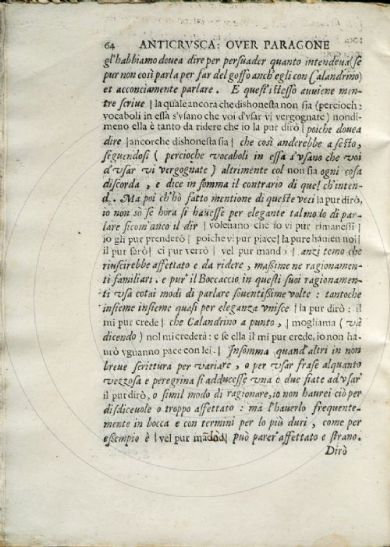 64 ANTICRVSCA: OVER PARAGONE
gl'habbiamo douea dire per persuader quanto intendeua (se
pur non così parla per far del goffo anch'egli con Calandrino)
et acconciamente parlare. E quest'istesso auuiene men-
tre scriue | la quale ancora che dishonesta non sia (percioch:
vocaboli in essa s'vsano che voi d'vsar vi vergognate) nondi-
meno ella è tanto da ridere che io la pur dirò | poiche douea
dire | ancorche dishonesta sia | che così anderebbe a sesto,
seguendosi ( percioche vocaboli in essa s'vsano che voi
d'vsar vi vergognate ) altrimente col non sia ogni cosa
discorda, e dice in somma il contrario di quel ch'inten-
d. Ma poi c'hò fatto mentione di queste veci la pur dirò,
io non sò se hora si hauesse per elegante tal modo di par-
lare sicom'anco il dir | voleuano che io vi pur rimanessi |
io gli pur prenderò | poiche vi pur piace | la pure hauen noi |
il pur farò | ci pur verrò | vel pur mando | anzi temo che
riuscirebbe affettato e da ridere, massime ne ragionamen-
ti familiari. e pur' il Boccaccio in questi suoi ragionamen-
ti vsa cotai modi di parlare souentissime volte: tantoche
insieme insieme quasi per eleganza vnisce | la pur dirò: il
mi pur crede | che Calandrino a punto, | mogliama (vià
dicendo) nol mi crederà: e se ella il mi pur crede, io non hau-
rò vguanno pace con lei. | Insomma quand'altri in non
breue scrittura per variare, o per vsar frase alquanto
vezzosa e peregrina si adducesse vna o due fiate ad vsar
il pur dirò, o simil modo di ragionare, io non haurei ciò per
disdiceuole o troppo affettato: mà l'hauerlo frequente-
mente in bocca e con termini per lo più duri, come per
essempio è | vel pur mandò | può parer' affettato e strano.
Dirò